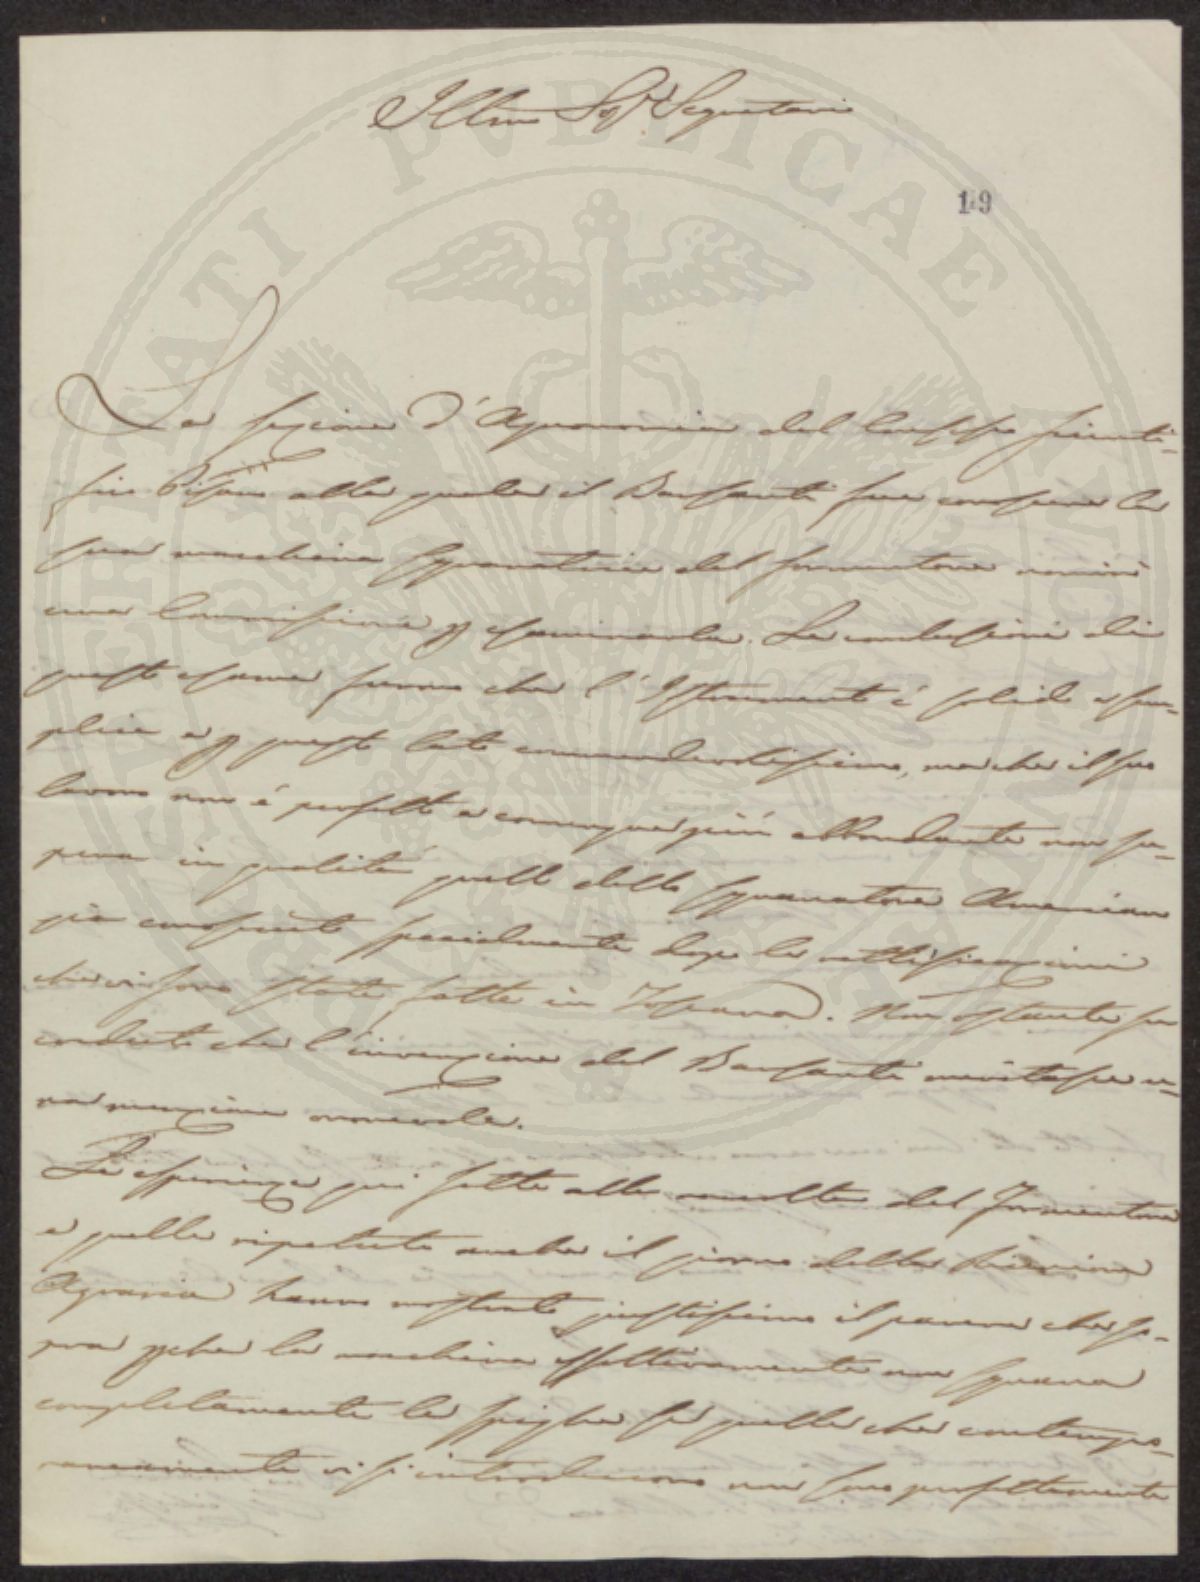 Illmo Sigr Segretario
149
La sezione d'Agronomia del Congresso scienti-
fico Pisano alla quale il Barsanti fece conoscere la
sua macchina sgranatrice del formentone nominò
una Commissione p esaminarla. Le conclusioni di
questo esame furono che l'Istrumento è solido e sem-
plice e p questo lato commendevolissimo, ma che il suo
lavoro non è perfetto e comunque più abbondante non su-
pera in qualità quello dello sgranatore Americano
già conosciuto specialmente dopo le rettificazioni
che vi sono state fatte in Toscana. Non ostante fu
creduto che l'invenzione del Barsanti meritasse u-
na menzione onorevole.
Le esperienze poi fatte alla raccolta del formentone
e quelle ripetute anche il giorno della Riunione
Agraria hanno mostrato giustissimo il parere che so-
pra pche la macchina effettivamente non sgrana
completamente le spighe se quelle che contempo-
raneamente vi si introducono non sono perfettamente